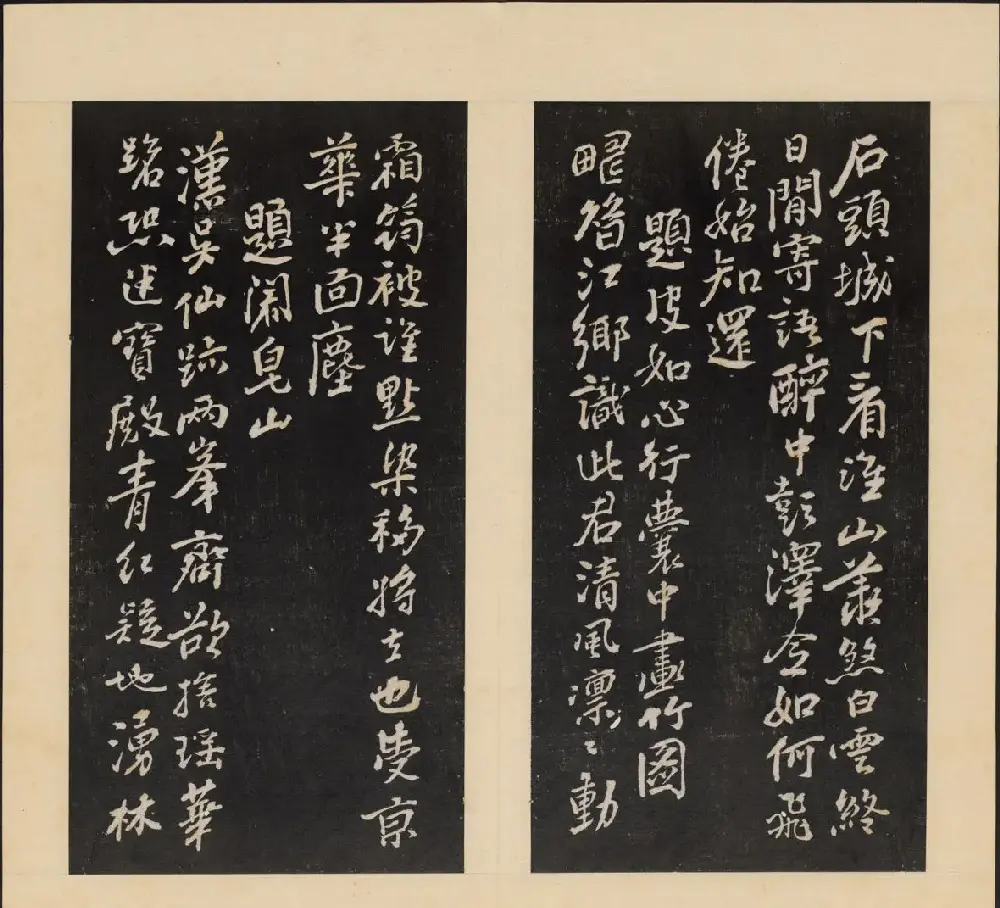 石頭城下看淮山羨煞白雲終
日閒寄語醉中彭澤令如何飛
倦始知還
題皮如心行囊中畫竹圖
曾江鄉識此君清風凜〻動
霜筠被誰點染移將去也受京
華半面塵
題閤皂山
漢吳仙跡兩峯齊欲捨瑶華
路恐迷寶殿青紅疑地湧林